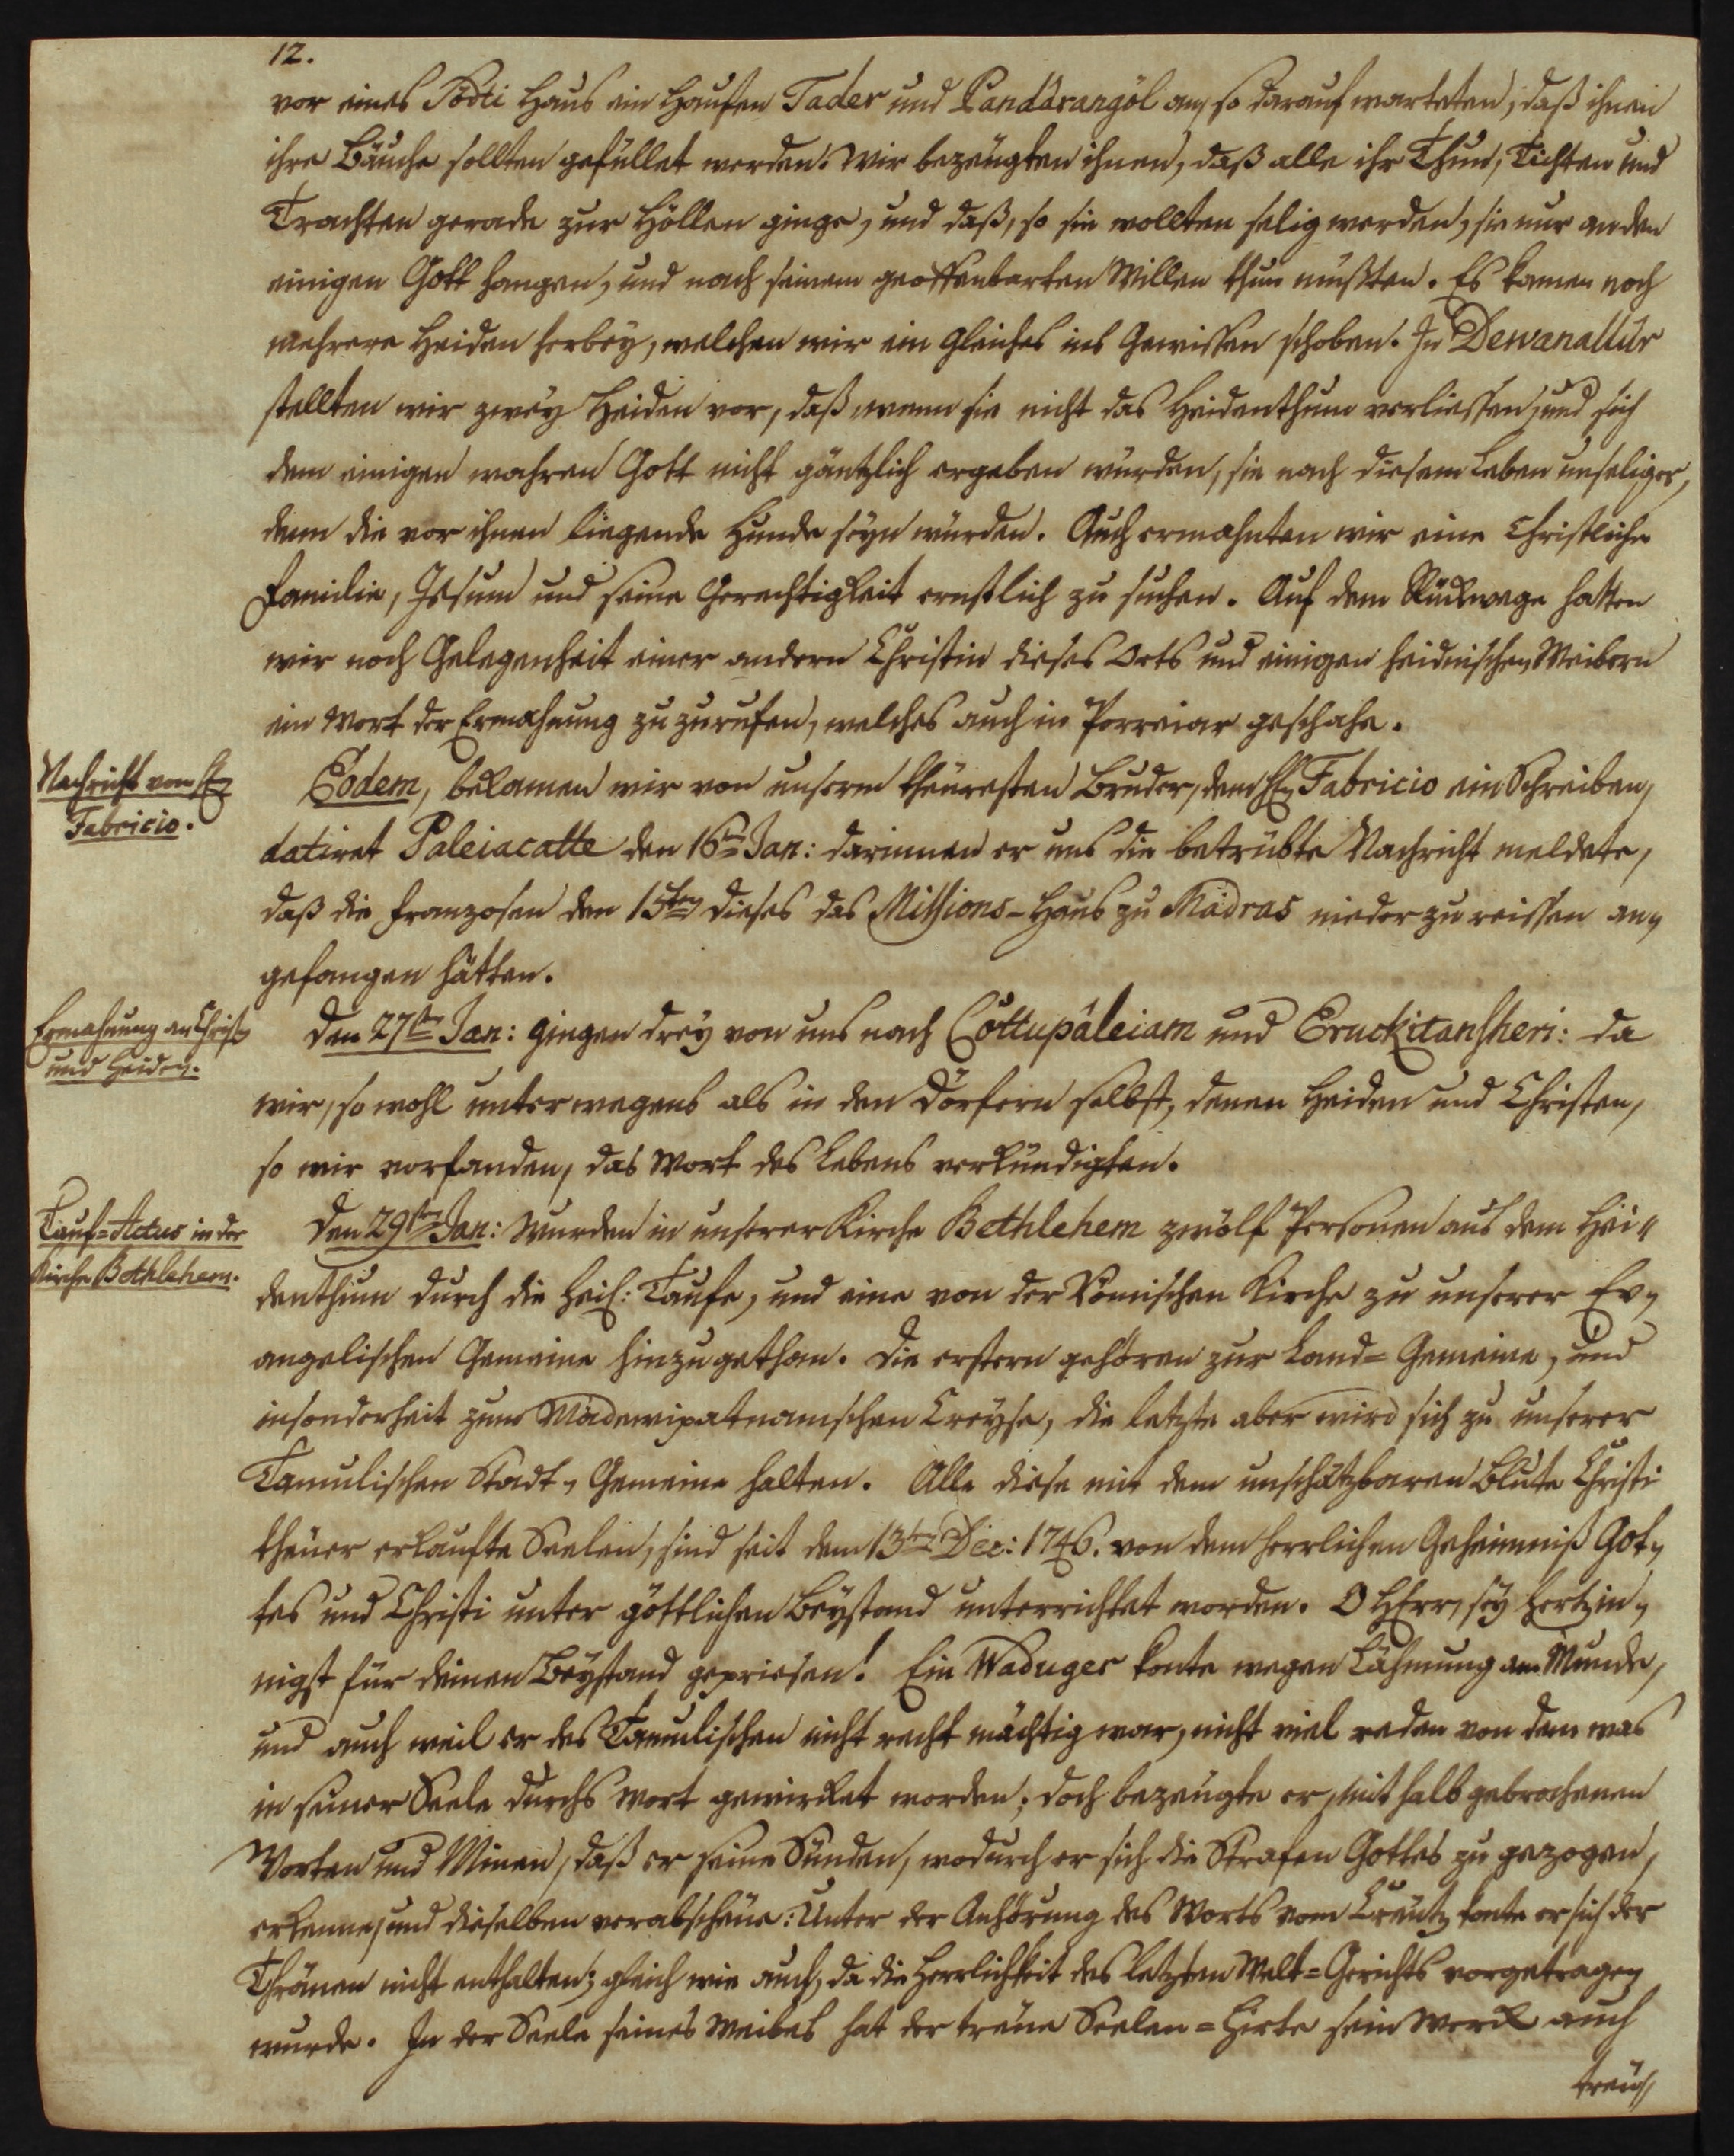 12.
vor eines Pödti Haus ein Hauffen Tader und Pandârangöl an, so darauf warteten, daß ihnen
ihre Bäuche sollten gefüllet werden. Wir bezeugten ihnen, daß alle ihr Thun, Tichten und
Trachten gerade zur Höllen ginge, und daß, so sie wollten selig werden, sie nur an den
einigen Gott hangen, und nach seinem geoffenbarten Willen thun müßten. Es kamen noch
mehrere Heiden herbey, welchen wir ein gleiches ins Gewissen schoben. In Dewanallûr
stellten wir zwey Heiden vor, daß wenn sie nicht das Heidenthum verliessen, und sich
dem einigen wahren Gott nicht gäntzlich ergeben würden, sie nach diesem Leben unseliger,
denn die vor ihnen liegende Hunde seyn würden. Auch ermahnten wir eine Christliche
Familie, Jesum und seine Gerechtigkeit ernstlich zu suchen. Auf dem Rückwege hatten
wir noch Gelegenheit einer andern Christin dieses Orts und einigen heidnischen Weibern
ein Wort der Ermahnung zu zurufen, welches auch in Porreiar geschahe.
Nachricht von Hn
Fabricio.
Eodem, bekamen wir von unserm theuresten Bruder, dem Hn Fabricio ein Schreiben,
datiret Paleiacatte den 16ten Jan: darinnen er uns die betrübte Nachricht meldete,
daß die Franzosen den 15ten dieses das Missions-Haus zu Madras nieder zu reissen an-
gefangen hätten.
Ermahnung an Christen
und Heiden.
Den 27ten Jan: gingen drey von uns nach Cottupâleiam und Eruckitansheri: da
wir, so wohl unterwegens als in den Dörfern selbst, denen Heiden und Christen,
so wir vorfanden, das Wort des Lebens verkündigten.
Tauf-Actus in der
Kirche Bethlehem.
Den 29ten Jan: wurden in unserer Kirche Bethlehem zwölf Personen aus dem Hei-
denthum durch die Heil: Taufe, und eine von der Römischen Kirche zu unserer Ev-
angelischen Gemeine hinzugethan. Die erstern gehören zur Land-Gemeine, und
insonderheit zum Mädewipatnamschen Creyse, die letzte aber wird sich zu unserer
Tamulischen Stadt-Gemeine halten. Alle diese mit dem unschätzbaren Blute Christi
theuer erkaufte Seelen, sind seit dem 13ten Dec: 1746. von dem herrlichen Geheimniß Got-
tes und Christi unter göttlichen Beystand unterrichtet worden. O HErr, sey hertzin-
nigst für deinen Beystand gepriesen! Ein Waduger konte wegen Lähmung am Munde,
und auch weil er des Tamulischen nicht recht mächtig war, nicht viel reden von dem was
in seiner Seele durchs Wort gewircket worden; doch bezeugte er, mit halb gebrochenen
Worten und Minen, daß er seine Sünden, wodurch er sich die Strafen Gottes zu gezogen,
erkenne, und dieselben verabscheue: Unter der Anhörung des Worts vom Creutz konte er sich der
Thränen nicht enthalten; gleich wie auch, da die Herrlichkeit des letzten Welt-Gerichts vorgetragen
wurde. In der Seele seines Weibes hat der treue Seelen-Hirte sein Werck auch
treu-